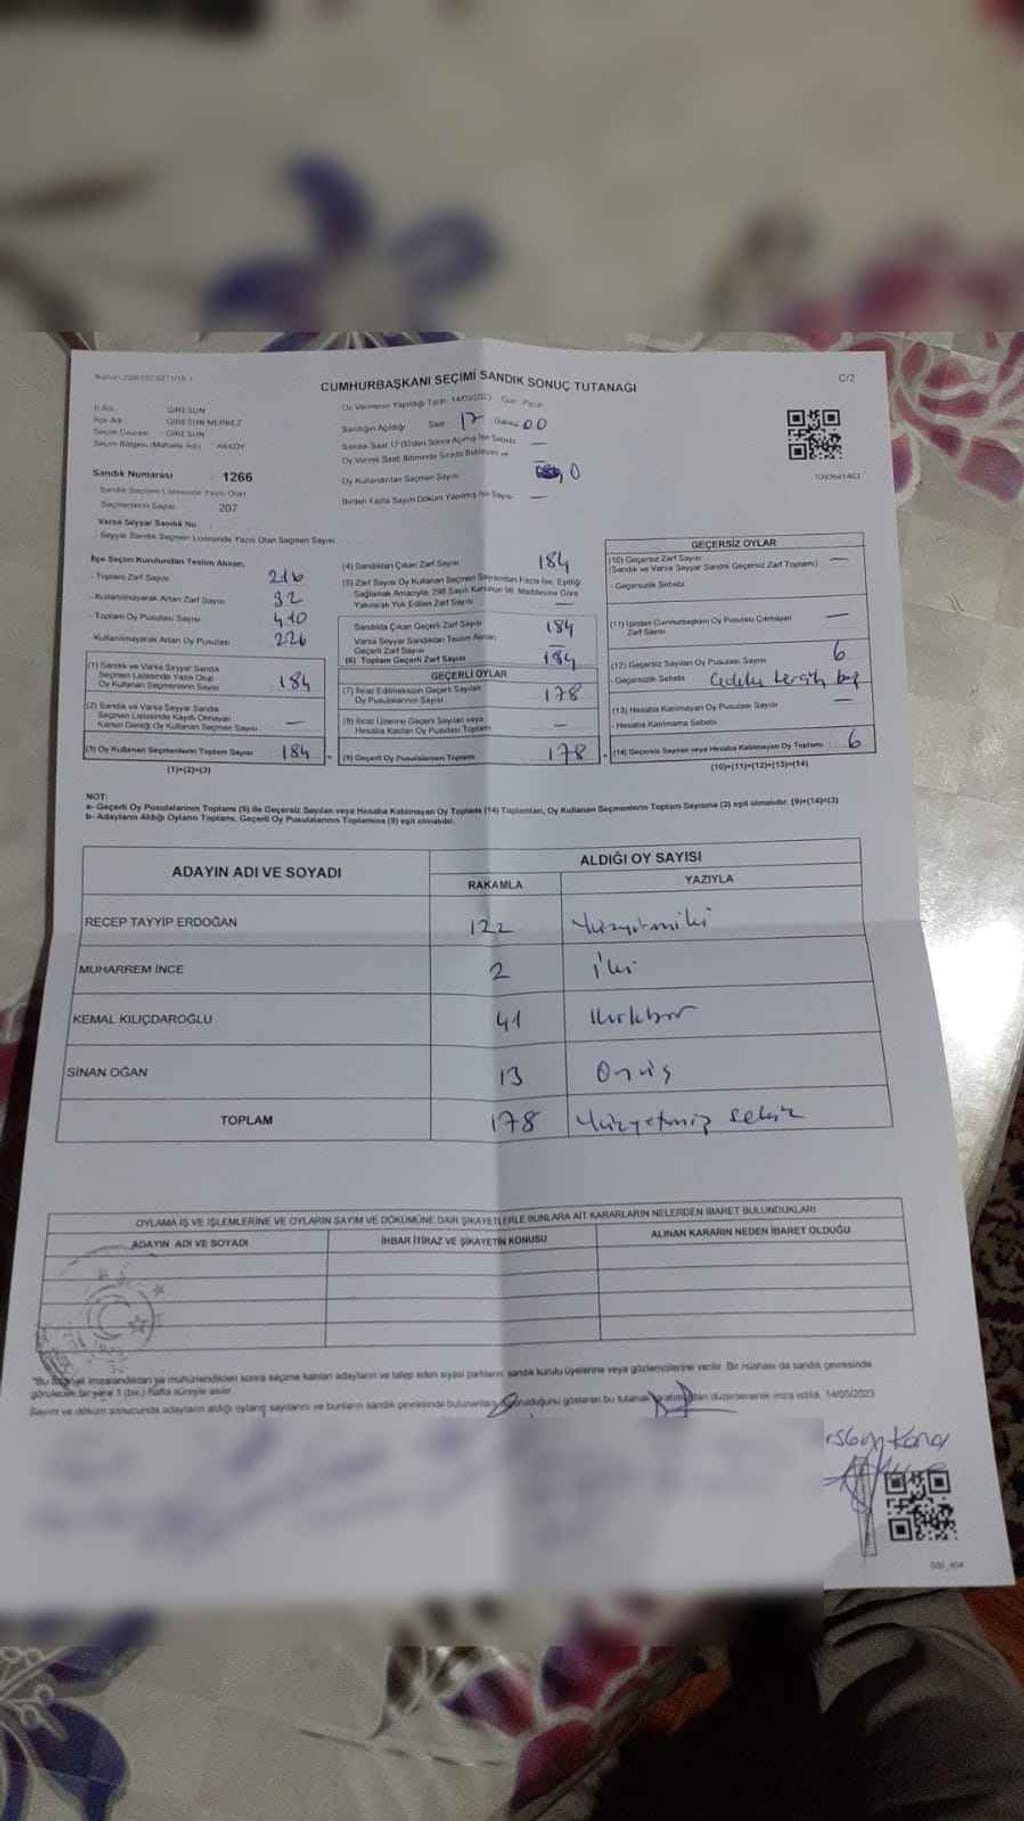 CUMHURBAŞKANI SEÇİMİ SANDIK SONUÇ TUTANAĞI
C/2
İl Adı : GİRESUN
İlçe Adı : GİRESUN MERKEZ
Seçim Çevresi : GİRESUN
Seçim Bölgesi (Mahalle Adı) : AKKÖY
Sandık Numarası : 1266
Sandık Seçmen Listesinde Yazılı Olan
Seçmenlerin Sayısı : 207
Varsa Seyyar Sandık No :
Seyyar Sandık Seçmen Listesinde Yazılı Olan Seçmen Sayısı :
Oy Vermenin Yapıldığı Tarih: 14/05/2023 Gün: Pazar
Sandığın Açıldığı Saat 17 Dakika 00
Sandık Saat 17:00'den Sonra Açılmış İse Sebebi —
Oy Verme Saati Bitiminde Sırada Bekleyen ve
Oy Kullandırılan Seçmen Sayısı 0
Birden Fazla Sayım Döküm Yapılmış İse Sayısı —
İlçe Seçim Kurulundan Teslim Alınan;
- Toplam Zarf Sayısı 216
- Kullanılmayarak Artan Zarf Sayısı 32
- Toplam Oy Pusulası Sayısı 410
- Kullanılmayarak Artan Oy Pusulası 226
(1) Sandık ve Varsa Seyyar Sandık
Seçmen Listesinde Yazılı Olup
Oy Kullanan Seçmenlerin Sayısı 184
(2) Sandık ve Varsa Seyyar Sandık
Seçmen Listesinde Kayıtlı Olmayan
Kanun Gereği Oy Kullanan Seçmen Sayısı —
(3) Oy Kullanan Seçmenlerin Toplam Sayısı 184
(1)+(2)=(3)
(4) Sandıktan Çıkan Zarf Sayısı 184
(5) Zarf Sayısı Oy Kullanan Seçmen Sayısından Fazla İse, Eşitliği
Sağlamak Amacıyla, 298 Sayılı Kanunun 98. Maddesine Göre
Yakılarak Yok Edilen Zarf Sayısı —
Sandıkta Çıkan Geçerli Zarf Sayısı 184
Varsa Seyyar Sandıktan Teslim Alınan
Geçerli Zarf Sayısı —
(6) Toplam Geçerli Zarf Sayısı 184
GEÇERLİ OYLAR
(7) İtiraz Edilmeksizin Geçerli Sayılan
Oy Pusulalarının Sayısı 178
(8) İtiraz Üzerine Geçerli Sayılan veya
Hesaba Katılan Oy Pusulası Toplamı —
(9) Geçerli Oy Pusulalarının Toplamı 178
GEÇERSİZ OYLAR
(10) Geçersiz Zarf Sayısı —
(Sandık ve Varsa Seyyar Sandık Geçersiz Zarf Toplamı)
- Geçersizlik Sebebi
(11) İçinden Cumhurbaşkanı Oy Pusulası Çıkmayan
Zarf Sayısı —
(12) Geçersiz Sayılan Oy Pusulası Sayısı 6
- Geçersizlik Sebebi
(13) Hesaba Katılmayan Oy Pusulası Sayısı —
- Hesaba Katılmama Sebebi
(14) Geçersiz Sayılan veya Hesaba Katılmayan Oy Toplamı 6
(10)+(11)+(12)+(13)=(14)
NOT:
a- Geçerli Oy Pusulalarının Toplamı (9) ile Geçersiz Sayılan veya Hesaba Katılmayan Oy Toplamı (14) Toplamları, Oy Kullanan Seçmenlerin Toplam Sayısına (3) eşit olmalıdır. (9)+(14)=(3)
b- Adayların Aldığı Oyların Toplamı, Geçerli Oy Pusulalarının Toplamına (9) eşit olmalıdır.
ADAYIN ADI VE SOYADI ALDIĞI OY SAYISI
RAKAMLA YAZIYLA
RECEP TAYYİP ERDOĞAN 122 Yüzyirmiiki
MUHARREM İNCE 2 iki
KEMAL KILIÇDAROĞLU 41 Kırkbir
SİNAN OĞAN 13 Onüç
TOPLAM 178 Yüzyetmiş sekiz
OYLAMA İŞ VE İŞLEMLERİNE VE OYLARIN SAYIM VE DÖKÜMÜNE DAİR ŞİKAYETLERLE BUNLARA AİT KARARLARIN NELERDEN İBARET BULUNDUKLARI
ADAYIN ADI VE SOYADI İHBAR İTİRAZ VE ŞİKAYETİN KONUSU ALINAN KARARIN NEDEN İBARET OLDUĞU
"Bu imzalandıktan ve mühürlendikten sonra seçime katılan adayların ve talep eden siyasi partilerin sandık kurulu üyelerine veya gözlemcilerine verilir. Bir nüshası da sandık çevresinde
görülecek bir yere 1 (bir) hafta süreyle asılır.
Sayım ve döküm sonucunda adayların aldığı oyların sayılarını ve bunların sandık çevresinde bulunanlara duyurulduğunu gösteren bu tutanak tarafımızdan düzenlenerek imza edildi. 14/05/2023